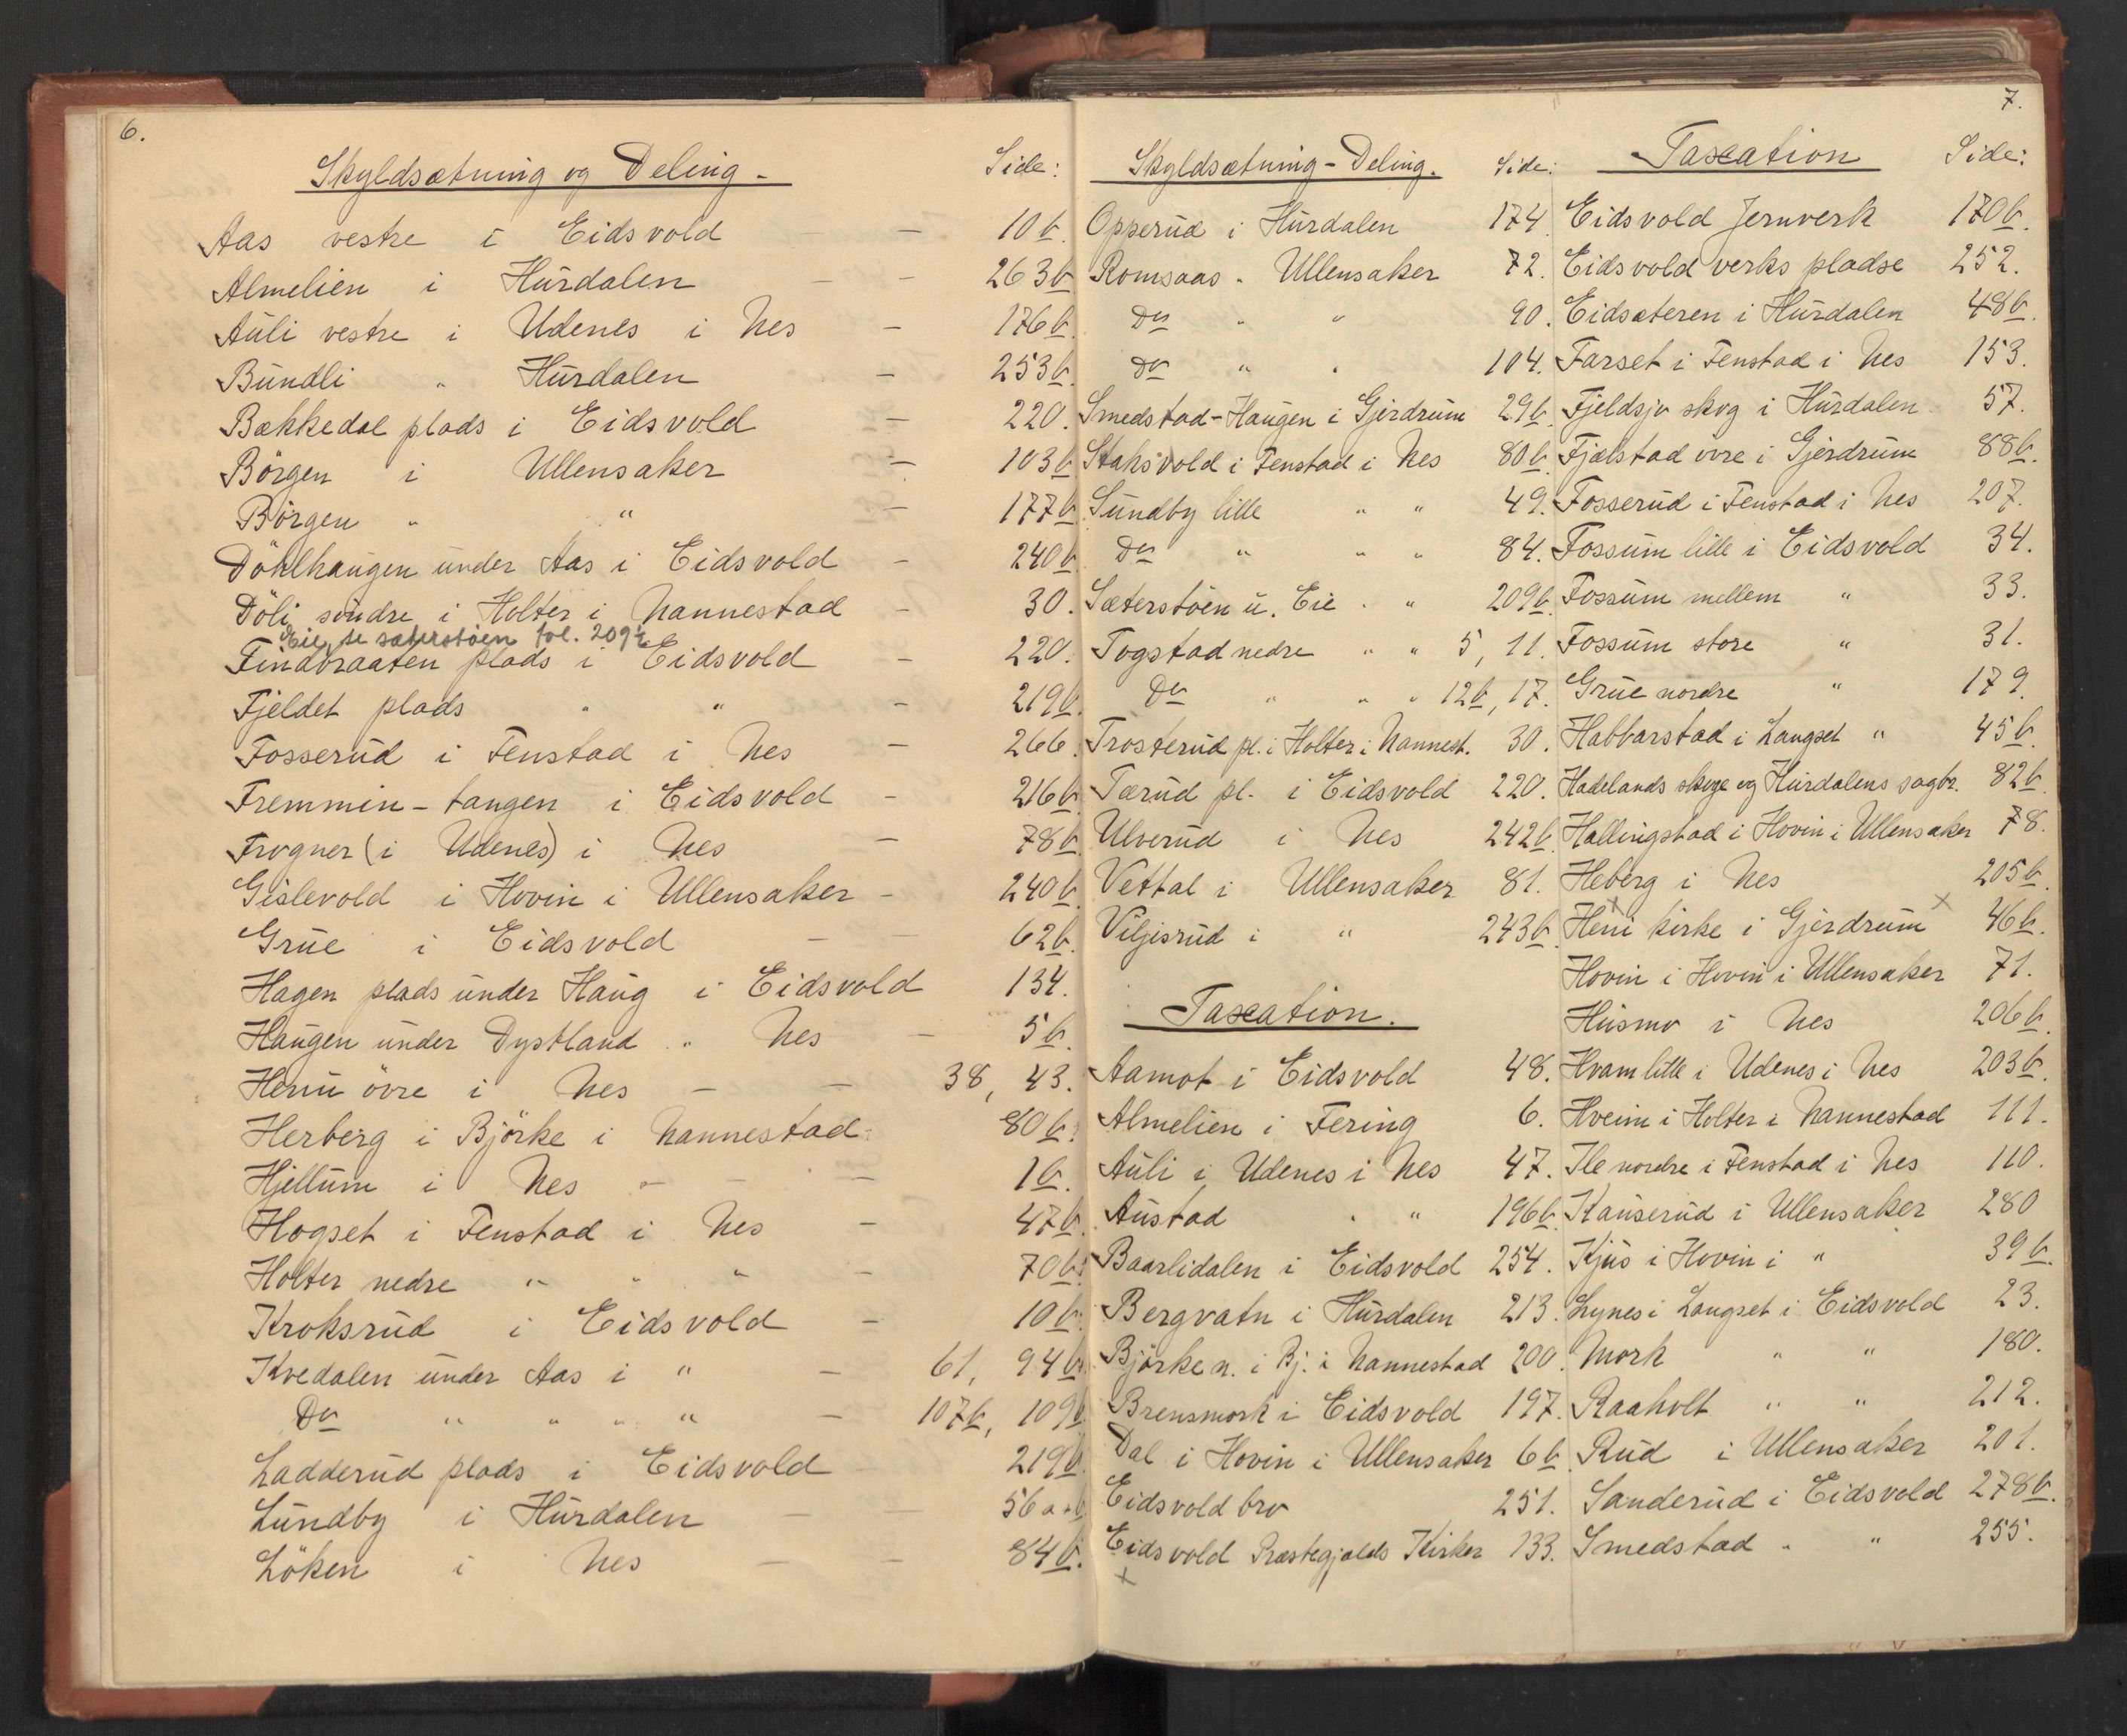 6.
Skyldsætning og Deling. Side:
Aas vestre i Eidsvold — 10b.
Almelien i Hurdalen — — 263b
Auli vestre i Udenes i Nes — 176b.
Bundli " Hurdalen — 253b.
Bækkedal plads i Eidsvold — 220.
Börgen i Ullensaker — 103b
Börgen " " 177b
Döhlhaugen under Aas i Eidsvold — 240b
Döli söndre i Holter i Nannestad — 30.
Eie, se sæterstöen fol. 209b
Findbraaten plads i Eidsvold — 220.
Fjeldet plads " " — 219b.
Fosserud i Fenstad i Nes — 266.
Fremmin-tangen i Eidsvold — 216b
Frogner (i Udenes) i Nes — 78b
Gislevold i Hovin i Ullensaker — 240b
Grue i Eidsvold — — 62b.
Hagen plads under Haug i Eidsvold 134.
Haugen under Dystland " Nes — 5b.
Henu övre i Nes — — 38, 43.
Herberg i Björke i Nannestad 80b.
Hjellum i Nes — — — 1b.
Hogset i Fenstad i Nes — 47b.
Holter nedre " " " — 70b.
Kroksrud i Eidsvold — 10b.
Kvedalen under Aas i " — 61, 94b.
Do " " " " — 107b, 109b
Ladderud plads i Eidsvold 219b.
Lundby i Hurdalen — — 56a+b
Löken i Nes — — 84b.
7.
Skyldsætning-Deling. Side:
Opperud i Hurdalen 174.
Romsaas " Ullensaker 72.
Do " " 90.
Do " " 104.
Smedstad-Haugen i Gjerdrum 29b
Staksvold i Fenstad i Nes 80b.
Sundby lille " " 49.
Do " " " 84.
Sæterstöen u. Eie " " 209b.
Togstad nedre " " 5, 11.
Do " " " 12b, 17.
Trosterud pl. i Holter i Nannest. 30.
Tærud pl. i Eidsvold 220.
Ulverud i Nes 242b.
Vettal i Ullensaker 81.
Viljisrud i " 243b.
Taxation.
Aamot i Eidsvold 48.
Almelien i Fering 6.
Auli i Udenes i Nes 47.
Austad " " 196b.
Baarlidalen i Eidsvold 254.
Bergvatn i Hurdalen 213.
Björke n. i Bj. i Nannestad 200.
Brensmork i Eidsvold 197.
Dal i Hovin i Ullensaker 6b.
Eidsvold bro 251.
Eidsvold Præstegjælds Kirker 133.
x
Taxation Side:
Eidsvold Jernverk 170b.
Eidsvold verks pladse 252.
Eidsæteren i Hurdalen 48b.
Farset i Fenstad i Nes 153.
Fjeldsjo skog i Hurdalen 57.
Fjælstad övre i Gjerdrum 88b.
Fosserud i Fenstad i Nes 207.
Fossum lille i Eidsvold 34.
Fossum mellem " 33.
Fossum store " 31.
Grue nordre " 179.
Habbarstad i Langset " 45b.
Hadelands skoge og Hurdalens sagbr. 82b.
Hallingstad i Hovin i Ullensaker 78.
Heberg i Nes 205b.
Heni kirke i Gjerdrum x 46b.
Hovin i Hovin i Ullensaker 71.
Husmo i Nes 206b.
Hvam lille i Udenes i Nes 203b.
Hveim i Holter i Nannestad 111.
Ile nordre i Fenstad i Nes 110.
Kauserud i Ullensaker 280
Kjus i Hovin i " 39b.
Lynes i Langset i Eidsvold 23.
Mork " " 180.
Raaholt " " 212.
Rud i Ullensaker 201.
Sanderud i Eidsvold 278b.
Smedstad " " 255.